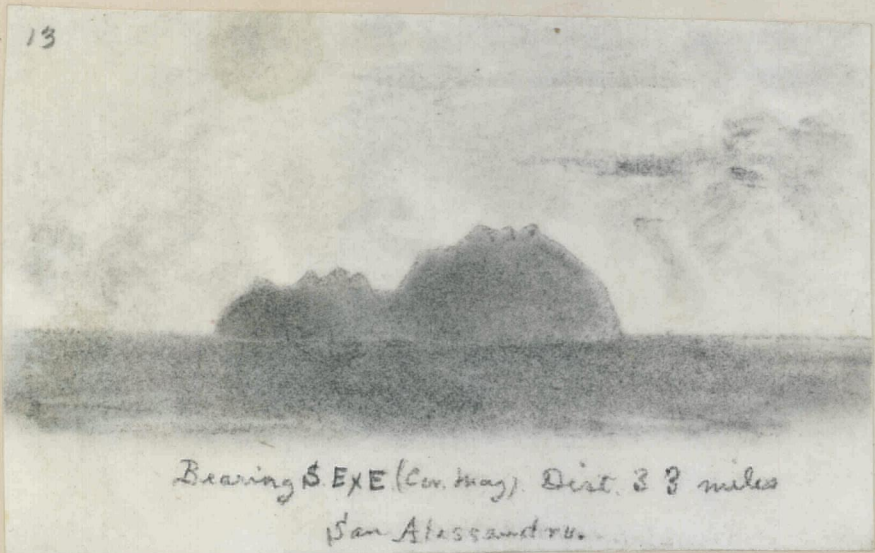 13
Bearing S.ExE (Cor. Mag). Dist. 33 miles
San Alessandro.